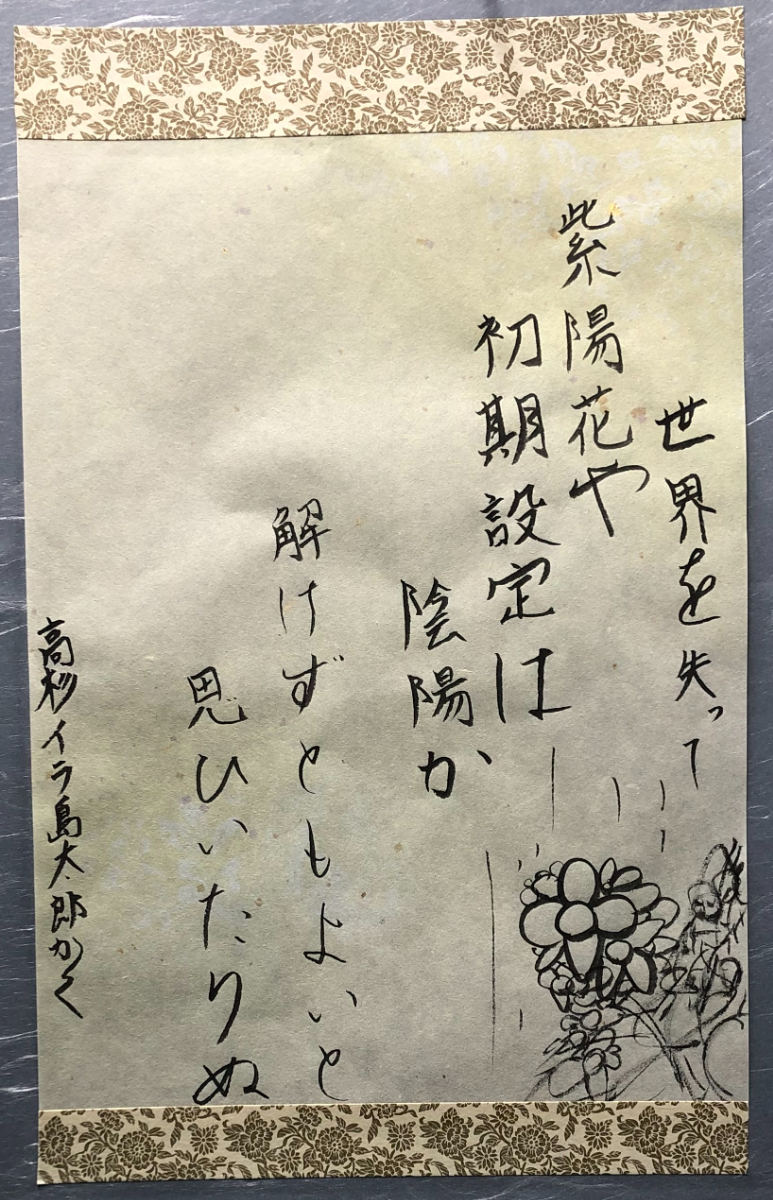 世界を失って
紫陽花や
初期設定は
陰陽か
解けずともよいと
思ひいたりぬ
高杉イラ島太郎かく